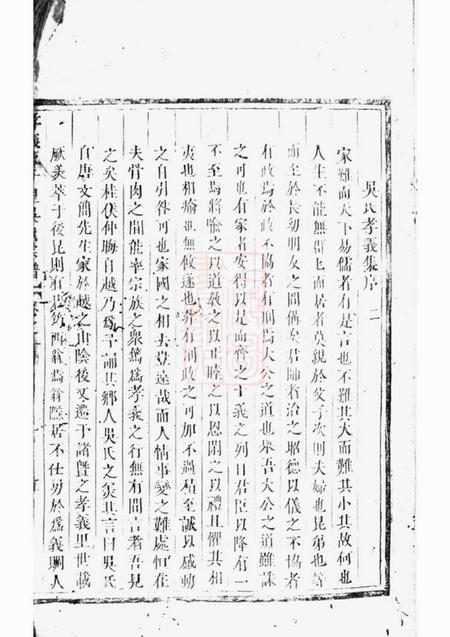 吳氏孝義集序 二
家難而天下易儒者有是言也不難其大而難其小其故何也
人生不能無群也而居者莫親於父子次則夫婦也昆弟也等
而至於長幼朋友之間偁矣君師者治之昭德以儀之不協者
有政焉於政不協者有刑焉大公之道也舉吾大公之道雖誅
之可也有家者安得以是而齊之十義之列自君臣以降有一
不至焉將喻之以道教之以正睦之以恩閑之以禮且懼其相
夷也相瘉也無攸遂也弗有刑政之可加不過積至誠以感動
之自引咎可也家國之相去豈遠哉而人情事變之難處恒在
夫骨肉之間能率宗族之眾篤爲孝義之行無有間言者吾見
之矣桂侯仲晦自越乃爲予誦其鄉人吳氏之美其言曰吳氏
自唐文簡先生家於越之山陰後又遷于諸曁之孝義里世載
厥美萃于後昆則有 筠西翁焉翁隱居不仕勇於爲義嗣人